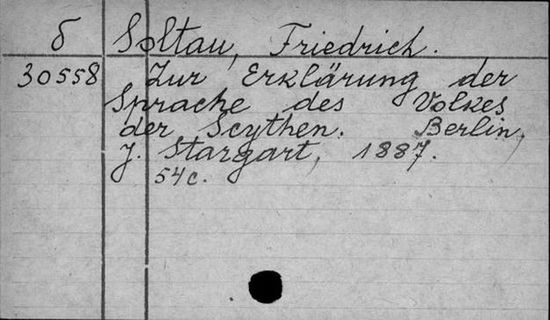 б Soltau, Friedrich.
30558 Zur Erklärung der
Sprache des Volkes
der Scythen. Berlin,
J. Stargart, 1887.
54c.